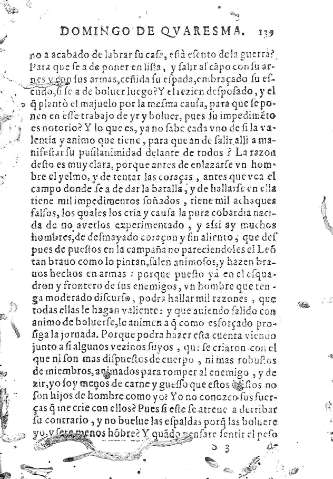 DOMINGO DE QVARESMA. 139
no a acabado de labrar su casa, està esento de la guerra?
Para que se a de poner en lista, y salir al cãpo con su ar-
nes y con sus armas, ceñida su espada, embraçado su es-
cudo, si se a de bolver luego? Y el rezien desposado, y el
q̃ plantò el majuelo por la mesma causa, para que se po-
nen en esse trabajo de yr y bolver, pues su impedimẽto
es notorio? Y lo que es, ya no sabe cada vno de si la va-
lencia y animo que tiene, para que an de salir alli a ma-
nifestar su pusilanimidad delante de todos? La razon
desto es muy clara, porque antes de enlazarse vn hom-
bre el yelmo, y de tentar las coraças, antes que vea el
campo donde se a de dar la batalla, y de hallarse en ella
tiene mil impedimentos soñados, tiene mil achaques
falsos, los quales los cria y causa la pura cobardia naci-
da de no averlos experimentado, y assi ay muchos
hombres, de desmayado coraçon y sin aliento, que des
pues de puestos en la campaña no pareciendoles el leõ
tan bravo como lo pintan, salen animosos, y hazen bra-
vos hechos en armas: porque puesto yà en el esqua-
dron y frontero de sus enemigos, vn hombre que ten-
ga moderado discurso, podra hallar mil razones, que
todas ellas le hagan valiente: y que auiendo salido con
animo de bolverse, le animen a q̃ como esforçado pro-
siga la jornada. Porque podra hazer esta cuenta viendo
junto a si algunos vezinos suyos, que se criaron con el
que ni son mas dispuestos de cuerpo, ni mas robustos
de miembros, animados para romper al enemigo, y de
zir, yo soy menos de carne y guesso que estos? estos no
son hijos de hombre como yo? Yo no conozco sus fuer-
ças q̃ me crie con ellos? Pues si este se atreve a derribar
su contrario, y no buelue las espaldas porq̃ las bolvere
yo, y sere menos hõbre? Y quãdo pensare sentir el peso
S 3